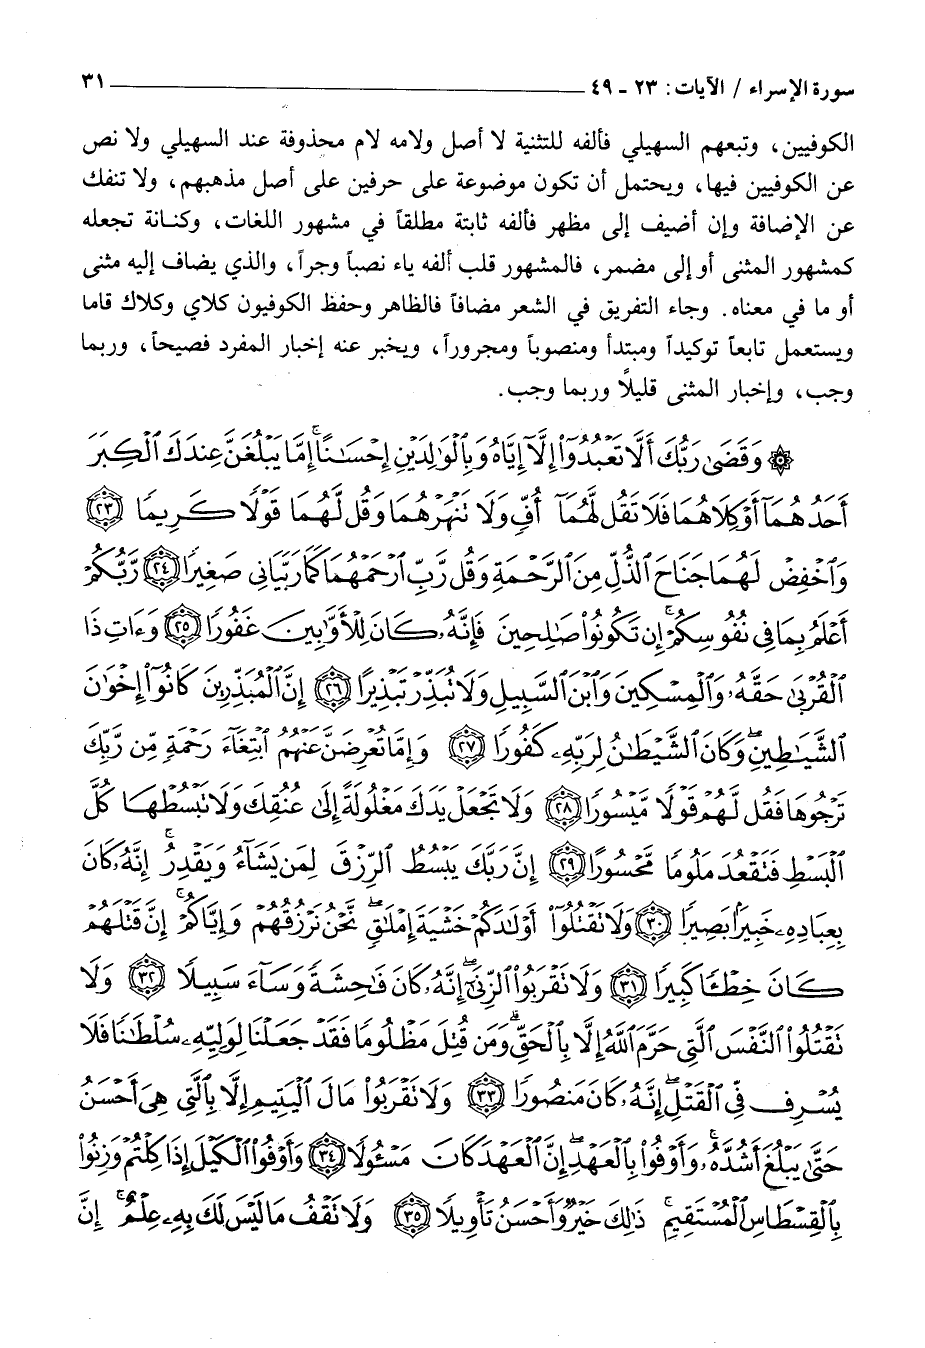 سورة الإسراء / الآيات: ٢٣ - ٤٩ ٣١
الكوفيين، وتبعهم السهيلي فألفه للتثنية لا أصل ولامه لام محذوفة عند السهيلي ولا نص
عن الكوفيين فيها، ويحتمل أن تكون موضوعة على حرفين على أصل مذهبهم، ولا تنفك
عن الإضافة وإن أضيف إلى مظهر فألفه ثابتة مطلقاً في مشهور اللغات، وكنانة تجعله
كمشهور المثنى أو إلى مضمر، فالمشهور قلب ألفه ياء نصباً وجراً، والذي يضاف إليه مثنى
أو ما في معناه. وجاء التفريق في الشعر مضافاً فالظاهر وحفظ الكوفيون كلاي وكلاك قاما
ويستعمل تابعاً توكيداً ومبتدأ ومنصوباً ومجروراً، ويخبر عنه إخبار المفرد فصيحاً، وربما
وجب، وإخبار المثنى قليلًا وربما وجب.
۞ وَقَضَىٰ رَبُّكَ أَلَّا تَعْبُدُوٓا۟ إِلَّآ إِيَّاهُ وَبِٱلْوَٰلِدَيْنِ إِحْسَٰنًا ۚ إِمَّا يَبْلُغَنَّ عِندَكَ ٱلْكِبَرَ
أَحَدُهُمَآ أَوْ كِلَاهُمَا فَلَا تَقُل لَّهُمَآ أُفٍّ وَلَا نَنْهَرْهُمَا وَقُل لَّهُمَا قَوْلًا كَرِيمًا ﴿٢٣﴾
وَٱخْفِضْ لَهُمَا جَنَاحَ ٱلذُّلِّ مِنَ ٱلرَّحْمَةِ وَقُل رَّبِّ ٱرْحَمْهُمَا كَمَا رَبَّيَانِى صَغِيرًا ﴿٢٤﴾ رَّبُّكُمْ
أَعْلَمُ بِمَا فِى نُفُوسِكُمْ ۚ إِن تَكُونُوا۟ صَٰلِحِينَ فَإِنَّهُۥ كَانَ لِلْأَوَّٰبِينَ غَفُورًا ﴿٢٥﴾ وَءَاتِ ذَا
ٱلْقُرْبَىٰ حَقَّهُۥ وَٱلْمِسْكِينَ وَٱبْنَ ٱلسَّبِيلِ وَلَا تُبَذِّرْ تَبْذِيرًا ﴿٢٦﴾ إِنَّ ٱلْمُبَذِّرِينَ كَانُوٓا۟ إِخْوَٰنَ
ٱلشَّيَٰطِينِ ۖ وَكَانَ ٱلشَّيْطَٰنُ لِرَبِّهِۦ كَفُورًا ﴿٢٧﴾ وَإِمَّا تُعْرِضَنَّ عَنْهُمُ ٱبْتِغَآءَ رَحْمَةٍ مِّن رَّبِّكَ
تَرْجُوهَا فَقُل لَّهُمْ قَوْلًا مَّيْسُورًا ﴿٢٨﴾ وَلَا تَجْعَلْ يَدَكَ مَغْلُولَةً إِلَىٰ عُنُقِكَ وَلَا تَبْسُطْهَا كُلَّ
ٱلْبَسْطِ فَتَقْعُدَ مَلُومًا مَّحْسُورًا ﴿٢٩﴾ إِنَّ رَبَّكَ يَبْسُطُ ٱلرِّزْقَ لِمَن يَشَآءُ وَيَقْدِرُ ۚ إِنَّهُۥ كَانَ
بِعِبَادِهِۦ خَبِيرًۢا بَصِيرًا ﴿٣٠﴾ وَلَا تَقْتُلُوٓا۟ أَوْلَٰدَكُمْ خَشْيَةَ إِمْلَٰقٍ ۖ نَّحْنُ نَرْزُقُهُمْ وَإِيَّاكُمْ ۚ إِنَّ قَتْلَهُمْ
كَانَ خِطْـًٔا كَبِيرًا ﴿٣١﴾ وَلَا تَقْرَبُوا۟ ٱلزِّنَىٰٓ ۖ إِنَّهُۥ كَانَ فَٰحِشَةً وَسَآءَ سَبِيلًا ﴿٣٢﴾ وَلَا
تَقْتُلُوا۟ ٱلنَّفْسَ ٱلَّتِى حَرَّمَ ٱللَّهُ إِلَّا بِٱلْحَقِّ ۗ وَمَن قُتِلَ مَظْلُومًا فَقَدْ جَعَلْنَا لِوَلِيِّهِۦ سُلْطَٰنًا فَلَا
يُسْرِف فِّى ٱلْقَتْلِ ۖ إِنَّهُۥ كَانَ مَنصُورًا ﴿٣٣﴾ وَلَا تَقْرَبُوا۟ مَالَ ٱلْيَتِيمِ إِلَّا بِٱلَّتِى هِىَ أَحْسَنُ
حَتَّىٰ يَبْلُغَ أَشُدَّهُۥ ۚ وَأَوْفُوا۟ بِٱلْعَهْدِ ۖ إِنَّ ٱلْعَهْدَ كَانَ مَسْـُٔولًا ﴿٣٤﴾ وَأَوْفُوا۟ ٱلْكَيْلَ إِذَا كِلْتُمْ وَزِنُوا۟
بِٱلْقِسْطَاسِ ٱلْمُسْتَقِيمِ ۚ ذَٰلِكَ خَيْرٌ وَأَحْسَنُ تَأْوِيلًا ﴿٣٥﴾ وَلَا تَقْفُ مَا لَيْسَ لَكَ بِهِۦ عِلْمٌ ۚ إِنَّ